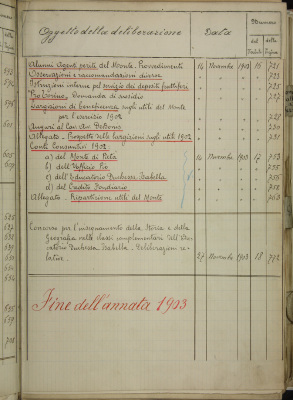 Oggetto della deliberazione Data Numero
del Verbale della Pagina
Alunni Agenti periti del Monte. Provvedimenti 14 Novembre 1903 16 721
Osservazioni e raccomandazioni diverse
Istruzioni interne pel servizio dei depositi fruttiferi
Pro Torino. Domanda di sussidio
Largizioni di beneficenza sugli utili del Monte
per l'esercizio 1902
Auguri al Cav.
Allegato - Prospetto delle largizioni sugli utili 1902
Conti Consuntivi 1902:
a) del Monte di Pietà 14 Novembre 1903 17
b) dell'Ufficio Pio
c) dell'Educatorio Duchessa Isabella
d) del Credito Fondiario
Allegato - Ripartizione utili del Monte
Concorso per l'insegnamento della Storia e della
Geografia nelle classi complementari dell'Edu-
catorio Duchessa Isabella - Deliberazioni re-
lative. 27 Novembre 1903 18 772
Fine dell'annata 1903